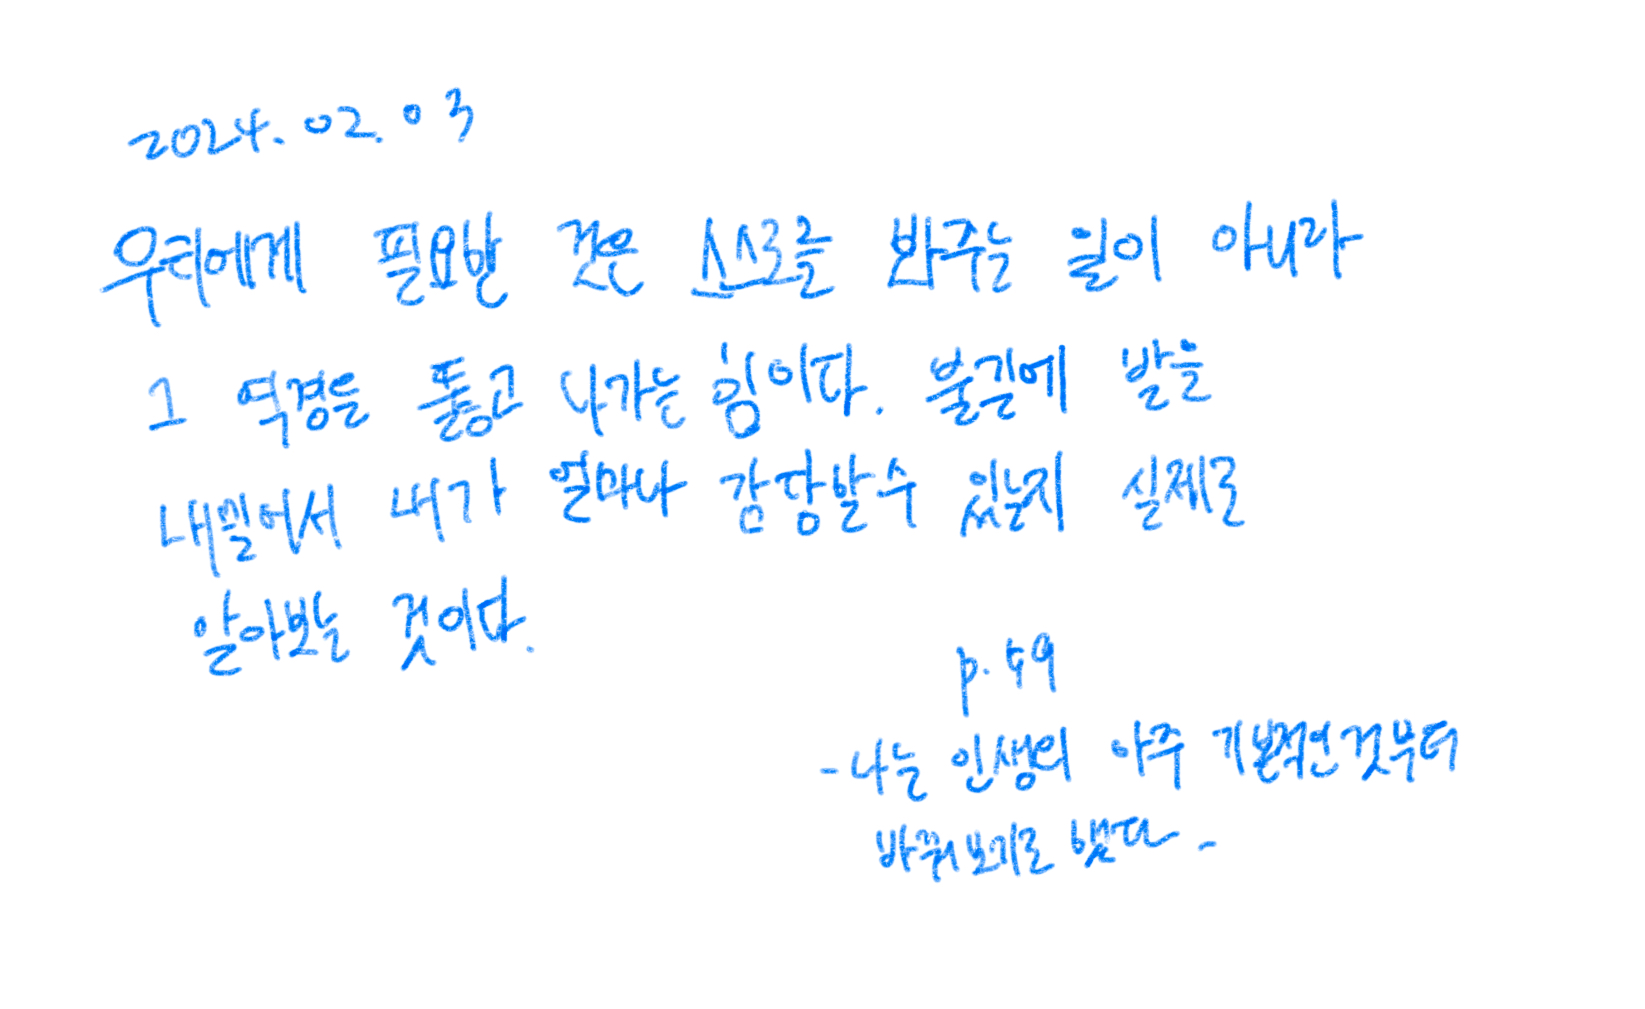 2024.02.03
우리에게 필요한 것은 스스로를 봐주는 일이 아니라
그 역경을 뚫고 나가는 힘이다. 불길에 발을
내밀어서 내가 얼마나 감당할수 있는지 실제로
알아보는 것이다.
p. 59
- 나는 인생의 아주 기본적인것부터
바꿔보기로 했다 -